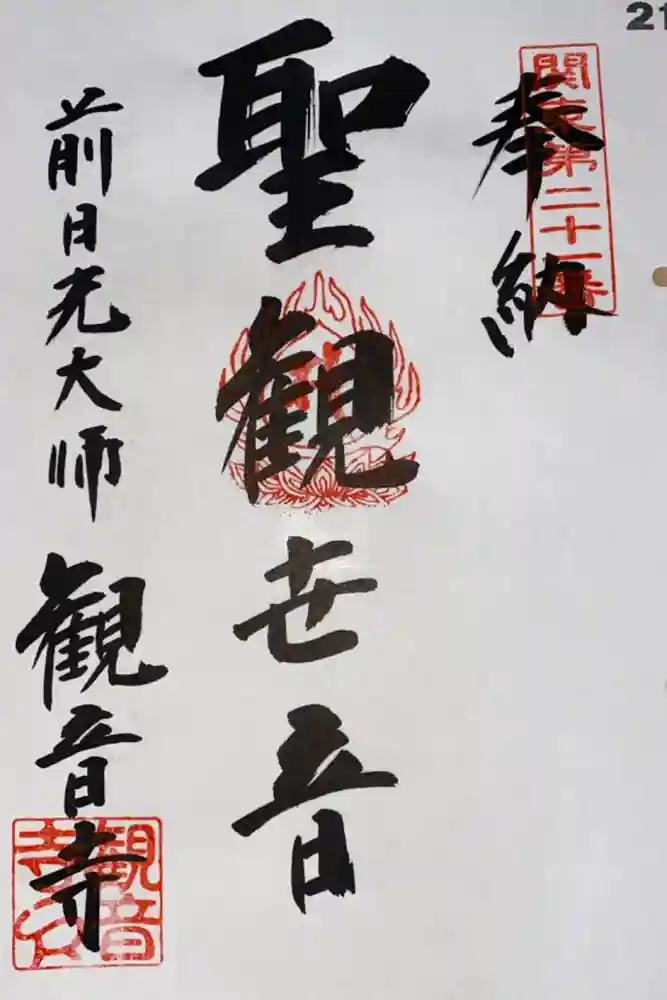 21
関東第二十一番
奉納
聖観世音
前日光大師
観音寺